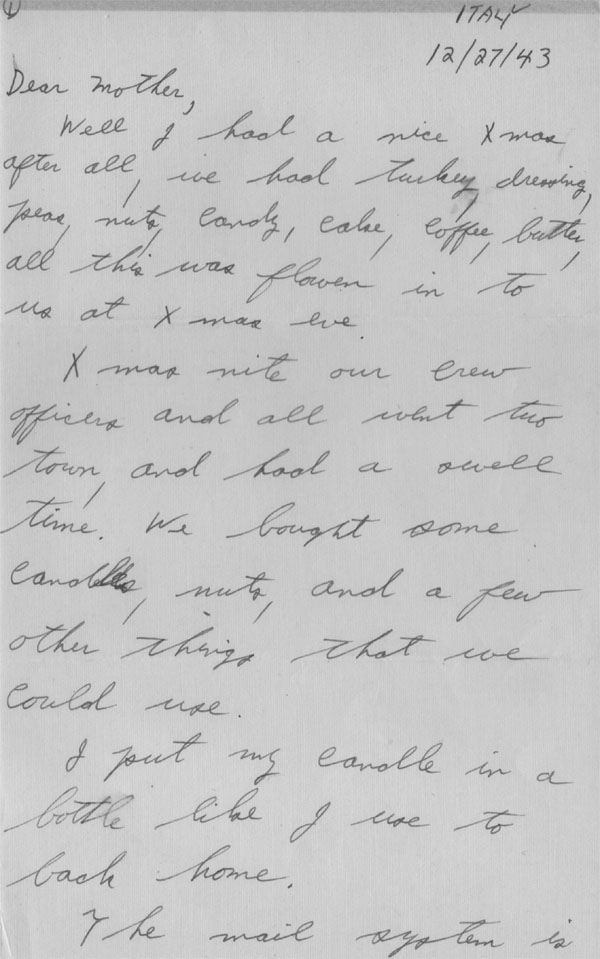 1
ITALY
12/27/43
Dear Mother,
Well I had a nice Xmas
after all, we had turkey dressing,
peas, nuts, candy, cake, coffee, butter,
all this was flowen in to
us at Xmas eve.
Xmas nite our crew
officers and all went two
town, and had a swell
time. We bought some
candles, nuts, and a few
other things that we
could use.
I put my candle in a
bottle like I use to
back home.
The mail system is